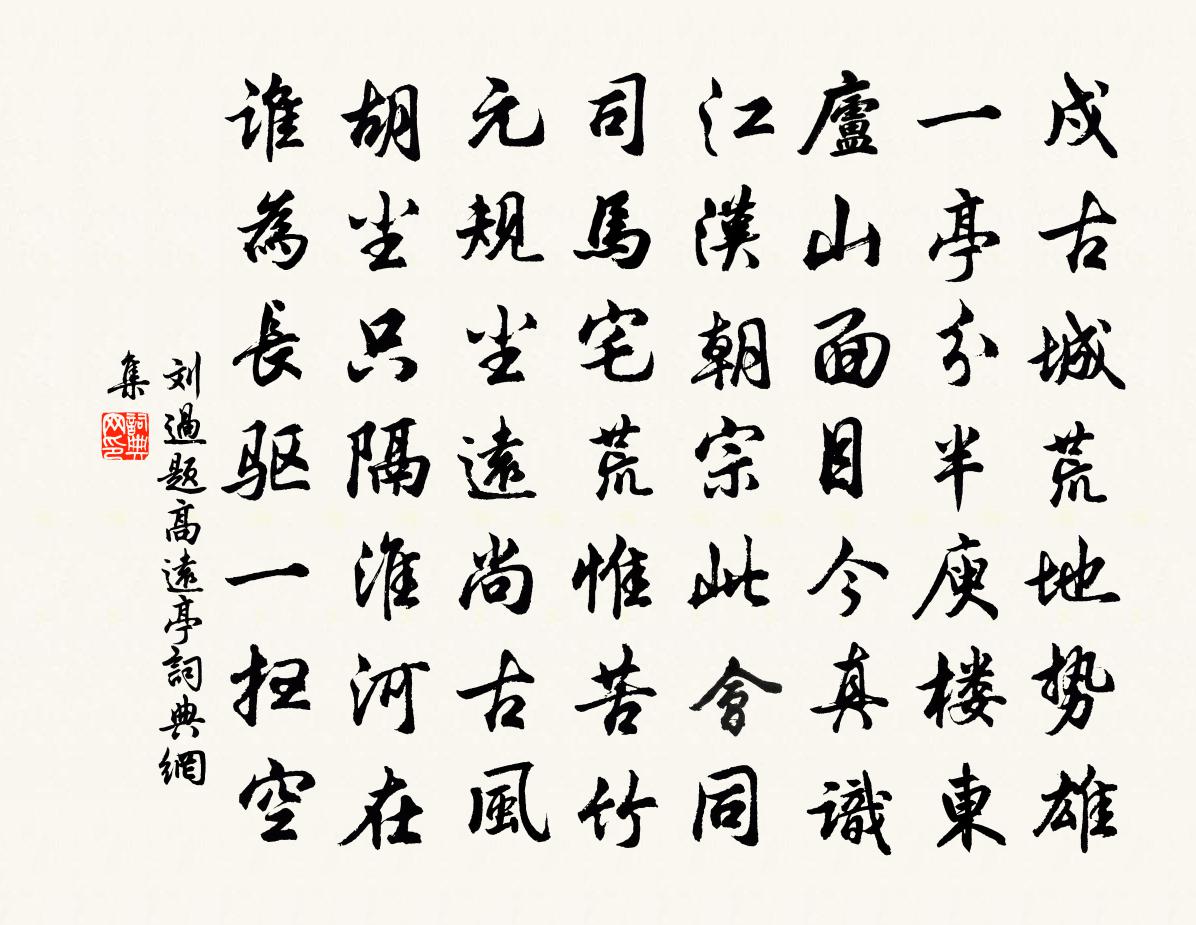 戍古城荒地势雄
一亭分半庾楼東
廬山面目今真識
江漢朝宗此會同
司馬宅荒惟苦竹
元规尘遠尚古風
胡尘只隔淮河在
谁為長驱一扫空
刘過题高遠亭詞典網
集
詞典
网印